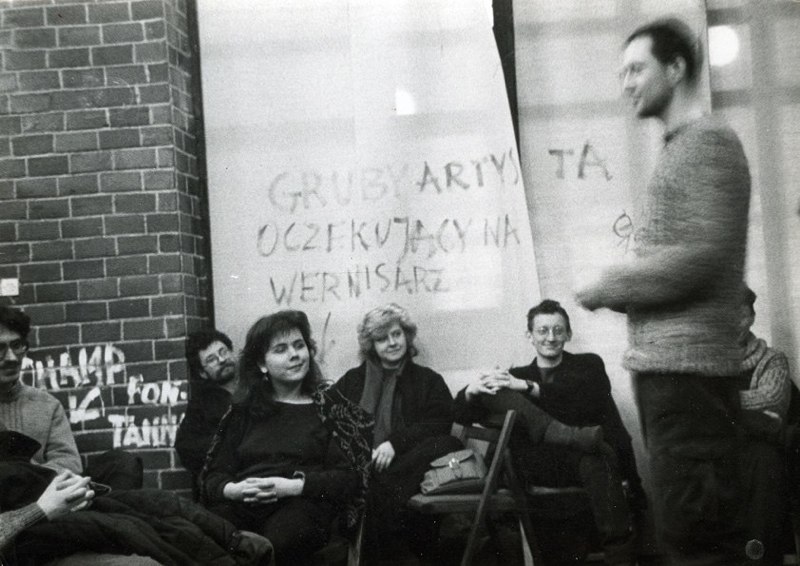 GRUBY ARTYSTA
OCZEKUJĄCY NA
WERNISARZ
!
HAMP
Z FON-
TANN